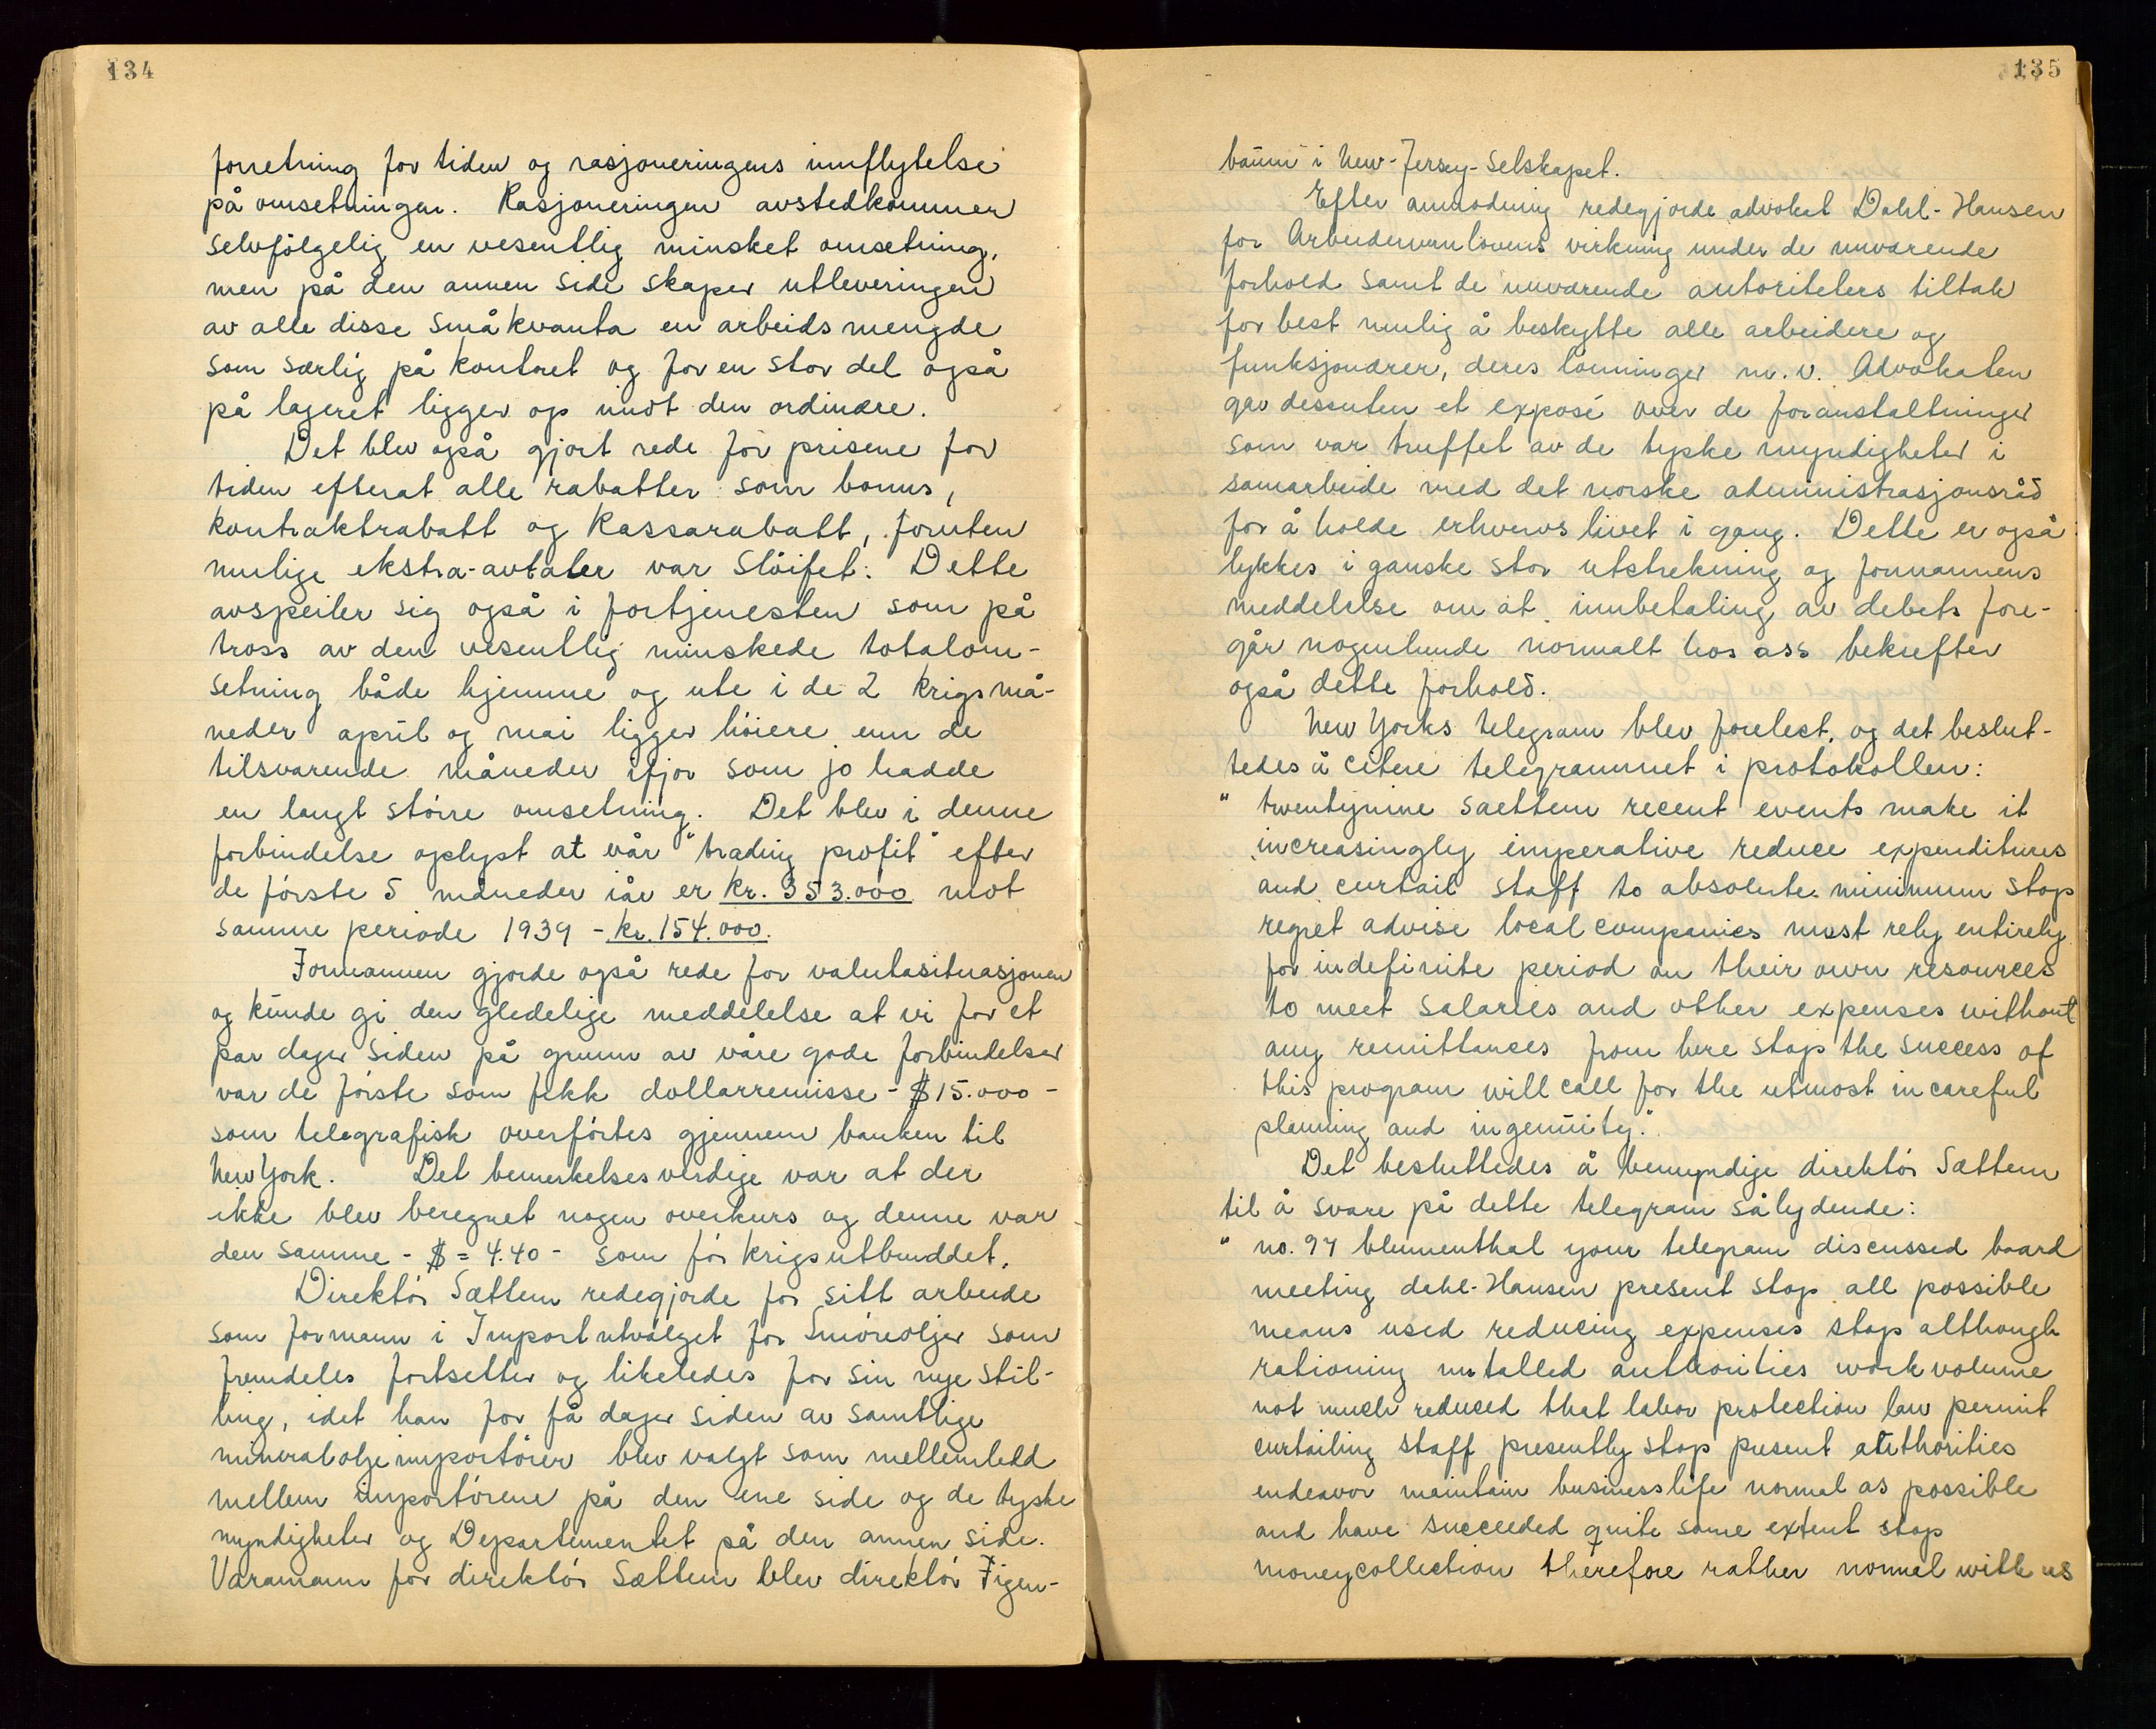 134
forretning for tiden og rasjoneringens innflytelse
på omsetningen. Rasjoneringen avstedkommer
selvfölgelig en vesentlig minsket omsetning,
men på den annen side skaper utleveringen
av alle disse småkvanta en arbeidsmengde
som særlig på kontoret og for en stor del også
på lageret ligger op imot den ordinære.
Det blev også gjort rede for prisene for
tiden efterat alle rabatter som bonus,
kontraktrabatt og Kassarabatt, foruten
mulige ekstra-avtaler var slöifet. Dette
avspeiler sig også i fortjenesten som på
tross av den vesentlig minskede totalom-
setning både hjemme og ute i de 2 krigsmå-
neder april og mai ligger höiere enn de
tilsvarende måneder ifjor som jo hadde
en langt större omsetning. Det blev i denne
forbindelse oplyst at vår "trading profit" efter
de förste 5 måneder iår er kr. 353.000 mot
samme periode 1939 - kr. 154.000.
Formannen gjorde også rede for valutasituasjonen
og kunde gi den gledelige meddelelse at vi for et
par dager siden på grunn av våre gode forbindelser
var de förste som fikk dollarremisse - $ 15.000 -
som telegrafisk overförtes gjennem banken til
New York. Det bemerkelsesverdige var at der
ikke blev beregnet nogen overkurs og denne var
den samme - $ = 4.40 - som för krigsutbruddet.
Direktör Sættem redegjorde for sitt arbeide
som formann i Importutvalget for Smöreoljer som
fremdeles fortsetter og likeledes for sin nye stil-
ling, idet han for få dager siden av samtlige
mineraloljeimportörer blev valgt som mellemledd
mellem importörene på den ene side og de tyske
myndigheter og Departementet på den annen side.
Varamann for direktör Sættem blev direktör Figen-
135
baum i New-Jersey-Selskapet.
Efter anmodning redegjorde advokat Dahl-Hansen
for Arbeidervernlovens virkning under de nuværende
forhold samt de nuværende autoriteters tiltak
for best mulig å beskytte alle arbeidere og
funksjonærer, deres lönninger m.v. Advokaten
gav dessuten et exposé over de foranstaltninger
som var truffet av de tyske myndigheter i
samarbeide med det norske administrasjonsråd
for å holde erhvervslivet i gang. Dette er også
lykkes i ganske stor utstrekning og formannens
meddelelse om at innbetaling av debets fore-
går nogenlunde normalt hos oss bekrefter
også dette forhold.
New Yorks telegram blev forelest, og det beslut-
tedes å citere telegrammet i protokollen:
" twentynine saettem recent events make it
increasingly imperative reduce expenditures
and curtail staff to absolute minimum stop
regret advise local companies must rely entirely
for indefinite period on their own resources
to meet salaries and other expenses without
any remittances from here stop the success of
this program will call for the utmost in careful
planning and ingenuity."
Det besluttedes å bemyndige direktör Sættem
til å svare på dette telegram sålydende:
" no. 97 blumenthal your telegram discussed board
meeting dahl-Hansen present stop all possible
means used reducing expenses stop although
rationing installed authorities work volume
not much reduced that labor protection law permit
curtailing staff presently stop present authorities
endeavor maintain businesslife normal as possible
and have succeeded quite some extent stop
moneycollection therefore rather normal with us